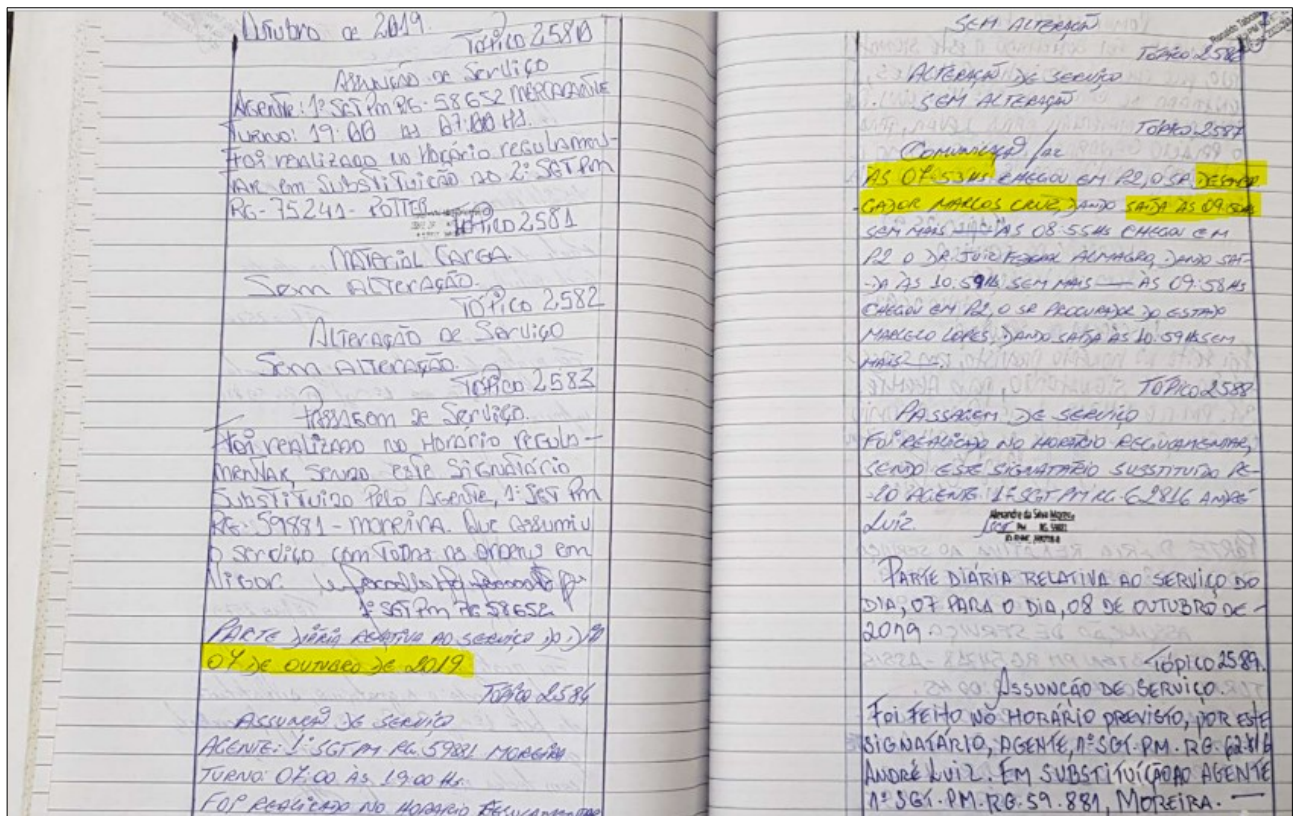 outubro de 2019.
Tópico 2580
Assunção de Serviço
Agente: 1º SGT PM RG-58652 MERCADANTE
Turno: 19:00 às 07:00 Hs.
Foi realizado no Horário regulamen-
tar em Substituição ao 2º SGT PM
RG-75241-POTTER
Tópico 2581
Material Carga.
Sem Alteração.
Tópico 2582
Alteração de Serviço
Sem Alteração.
Tópico 2583
Passagem de Serviço.
Foi realizado no Horário regula-
mentar, sendo este Signatário
Substituído pelo Agente, 1º SGT PM
RG-59881-MOREIRA. Que assumiu
o serviço com todas as ordens em
Vigor.
1º SGT PM RG 58652
PARTE DIÁRIA RELATIVA AO SERVIÇO DO DIA
07 DE OUTUBRO DE 2019
TÓPICO 2584
ASSUNÇÃO DE SERVIÇO
AGENTE: 1º SGT PM RG. 59881 MOREIRA
TURNO: 07:00 ÀS 19:00 Hs.
FOI REALIZADO NO HORARIO REGULAMENTAR
SEM ALTERAÇÃO
TÓPICO 2586
ALTERAÇÃO DE SERVIÇO
SEM ALTERAÇÃO
TÓPICO 2587
COMUNICAÇÃO
ÀS 07:53HS CHEGOU EM P2, O SR DESEMBAR
GADOR MARCOS CRUZ, DANDO SAÍDA ÀS 09:50HS
SEM MAIS — ÀS 08:55HS CHEGOU EM
P2 O DR JUIZ FEDERAL ALMAGRO, DANDO SAÍ-
-DA ÀS 10:59HS SEM MAIS — ÀS 09:58HS
CHEGOU EM P2, O SR PROCURADOR DO ESTADO
MARCELO LOPES, DANDO SAÍDA ÀS 10:59HS SEM
MAIS —
TÓPICO 2588
PASSAGEM DE SERVIÇO
FOI REALIZADO NO HORÁRIO REGULAMENTAR,
SENDO ESTE SIGNATÁRIO SUBSTITUÍDO PE-
-LO AGENTE 1º SGT PM RG. 62816 ANDRÉ
LUIZ.
Alexandre da Silva Moreira
PM RG 59881
PARTE DIÁRIA RELATIVA AO SERVIÇO DO
DIA, 07 PARA O DIA, 08 DE OUTUBRO DE-
2019
TÓPICO 2589.
ASSUNÇÃO DE SERVIÇO.
FOI FEITO NO HORÁRIO PREVISTO, POR ESTE
SIGNATÁRIO, AGENTE, 1º SGT. PM. RG. 62816
ANDRÉ LUIZ. EM SUBSTITUIÇÃO AO AGENTE
1º SGT. PM. RG. 59.881, MOREIRA. —